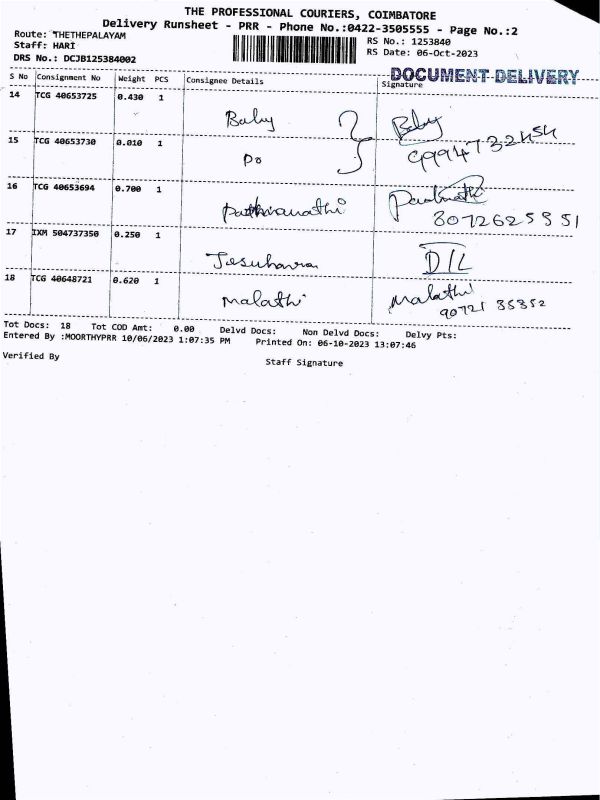 THE PROFESSIONAL COURIERS, COIMBATORE
Delivery Runsheet - PRR - Phone No.:0422-3505555 - Page No.:2
Route: THETHEPALAYAM
RS No.: 1253840
Staff: HARI
RS Date: 06-Oct-2023
DRS No.: DCJB125384002
DOCUMENT DELIVERY
S No Consignment No Weight PCS Consignee Details Signature
14 TCG 40653725 0.430 1 Baby Baby
15 TCG 40653730 0.010 1 Do
16 TCG 40653694 0.700 1 8072625551
17 IXM 504737350 0.250 1 D/L
18 TCG 40648721 0.620 1 Malathi Malathi
90721 35352
Tot Docs: 18 Tot COD Amt: 0.00 Delvd Docs: Non Delvd Docs: Delvy Pts:
Entered By :MOORTHYPRR 10/06/2023 1:07:35 PM Printed On: 06-10-2023 13:07:46
Verified By Staff Signature